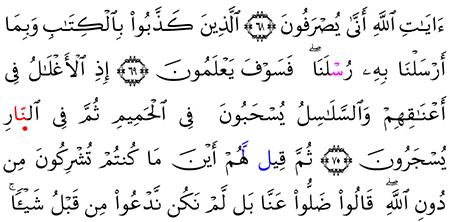 ءَايَٰتِ ٱللَّهِ أَنَّىٰ يُصْرَفُونَ ٦٨ ٱلَّذِينَ كَذَّبُوا۟ بِٱلْكِتَٰبِ وَبِمَا
أَرْسَلْنَا بِهِۦ رُسْلَنَاۖ فَسَوْفَ يَعْلَمُونَ ٦٩ إِذِ ٱلْأَغْلَٰلُ فِىٓ
أَعْنَٰقِهِمْ وَٱلسَّلَٰسِلُ يُسْحَبُونَ فِى ٱلْحَمِيمِ ثُمَّ فِى ٱلنّ۪ارِ
يُسْجَرُونَ ٧٠ ثُمَّ قِيل لَّهُمْ أَيْنَ مَا كُنتُمْ تُشْرِكُونَ مِن
دُونِ ٱللَّهِۖ قَالُوا۟ ضَلُّوا۟ عَنَّا بَل لَّمْ نَكُن نَّدْعُوا۟ مِن قَبْلُ شَيْـًٔاۚ